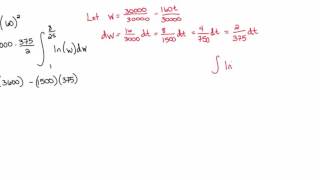 (60)²
000 · 375/2 ∫₁^(8/25) ln(w)dw
(3600) - (1500)(375)
Let w = 30000/30000 - 160t/30000
dw = 16/3000 dt = 8/1500 dt = 4/750 dt = 2/375 dt
∫ ln